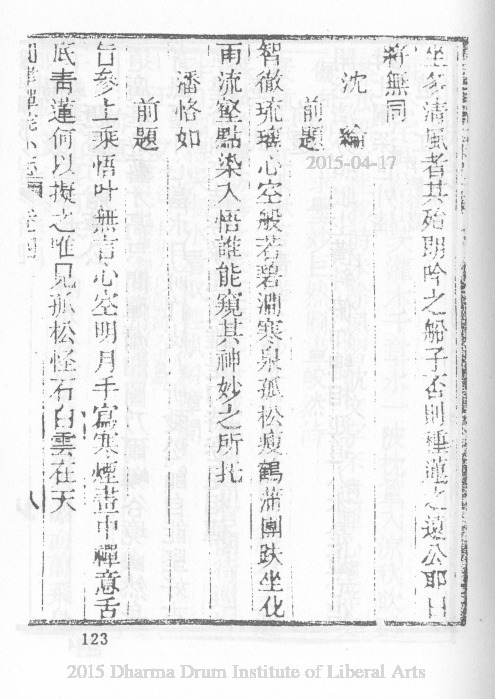 坐冬清風者其殆朗吟之船子否則種蓮之遠公耶曰
將無同
沈 綸
前題
智徹琉璃心空般若碧澗寒泉孤松瘦鶴蒲團趺坐化
雨流壑點染入悟誰能窺其神妙之所托
潘恪如
前題
旨參上乘悟叶無言心空明月手寫寒煙畫中禪意舌
底青蓮何以擬之唯見孤松怪石白雲在天
八
123
2015-04-17
2015 Dharma Drum Institute of Liberal Arts